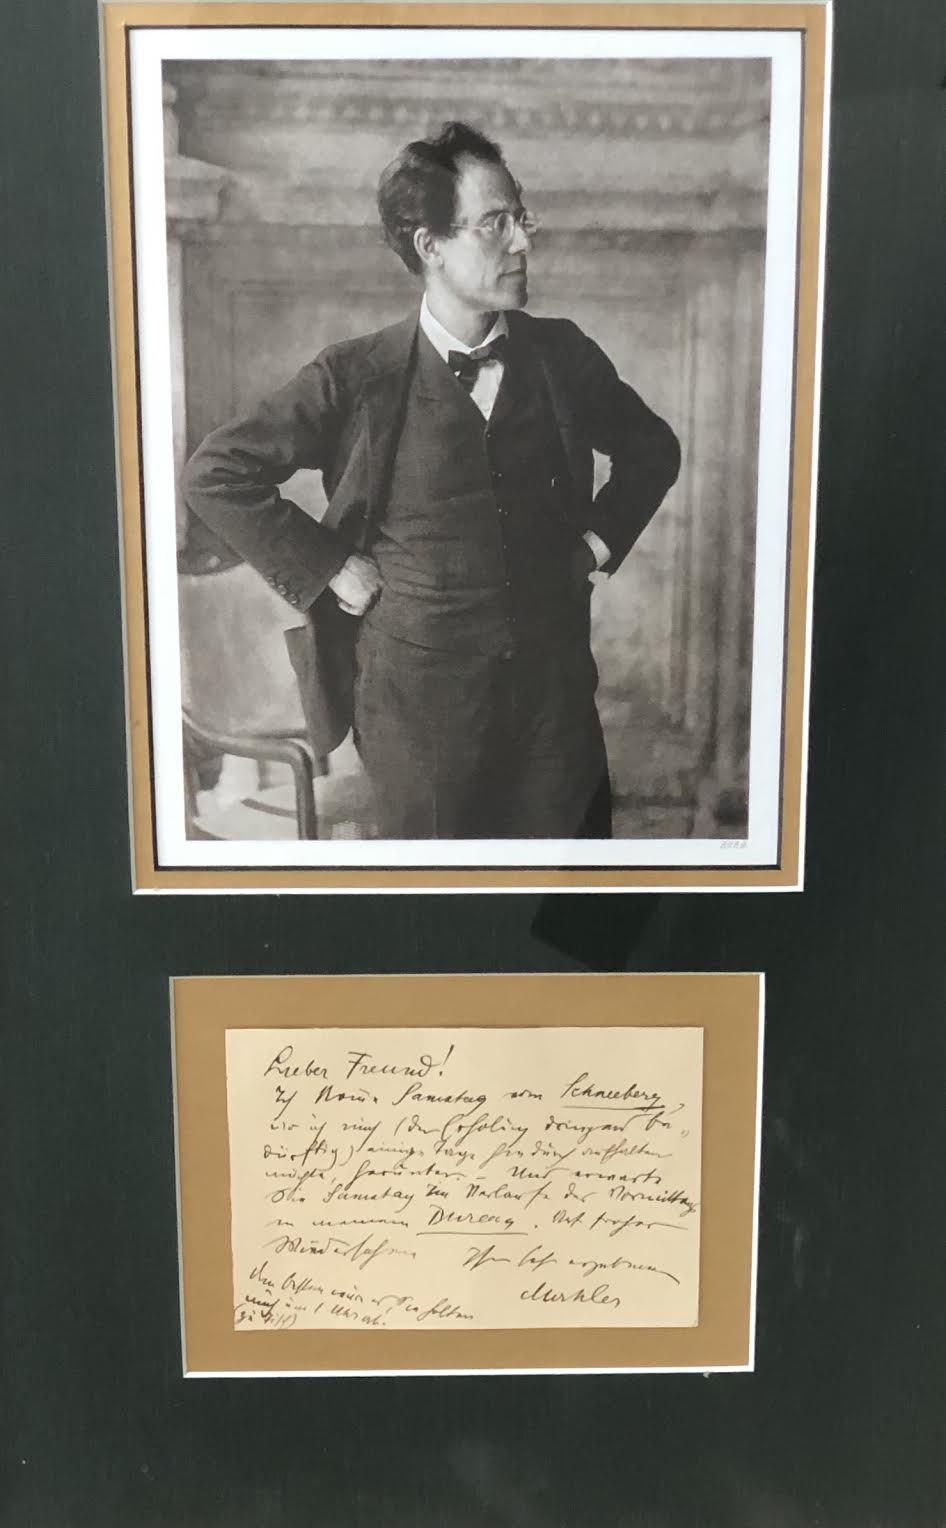 Lieber Freund!
Ich komme Samstag vom Schneeberg,
wo ich mich (der Erholung dringend be„
dürftig) einige Tage hindurch aufhalten
möchte, herunter. – Und erwarte
Sie Samstag im Verlaufe des Vormittags
in meinem Bureau. Auf frohes
Wiedersehen Ihr sehr ergebener
Mahler
Am besten wäre es, Sie holten
mich um 1 Uhr ab.